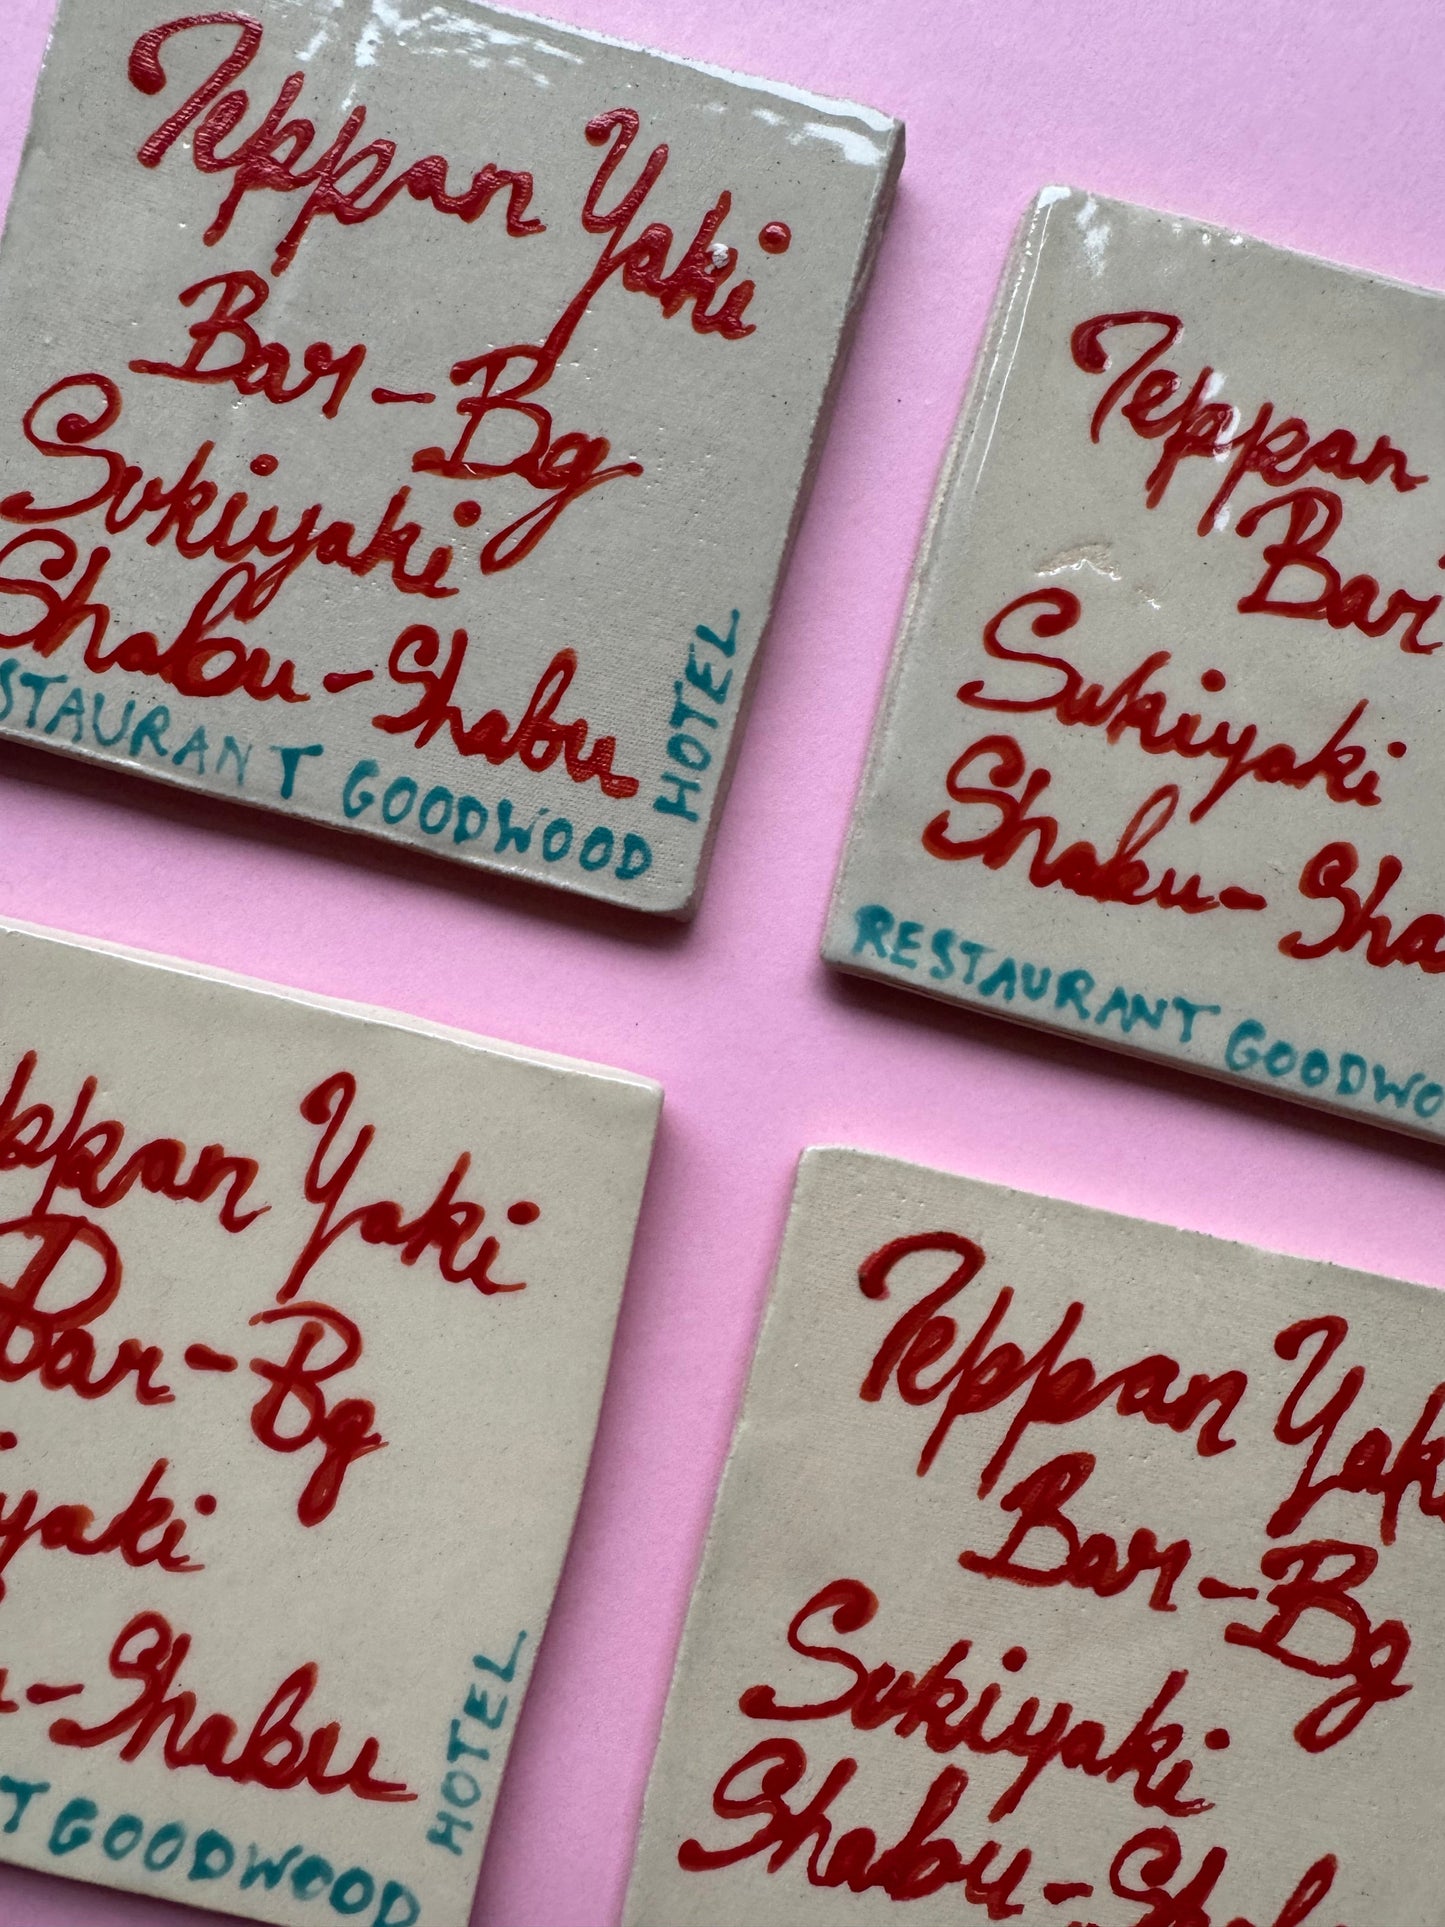 Teppan Yaki
Bar-Bg
Sukiyaki
Shabu-Shabu
STAURANT GOODWOOD
HOTEL
Teppan
Bar
Sukiyaki
Shabu-Sha
RESTAURANT GOODWO
ppan Yaki
Bar-Bg
yaki
-Shabu
T GOODWOOD
HOTEL
Teppan Yak
Bar-Bg
Sukiyaki
Shabu-Shab